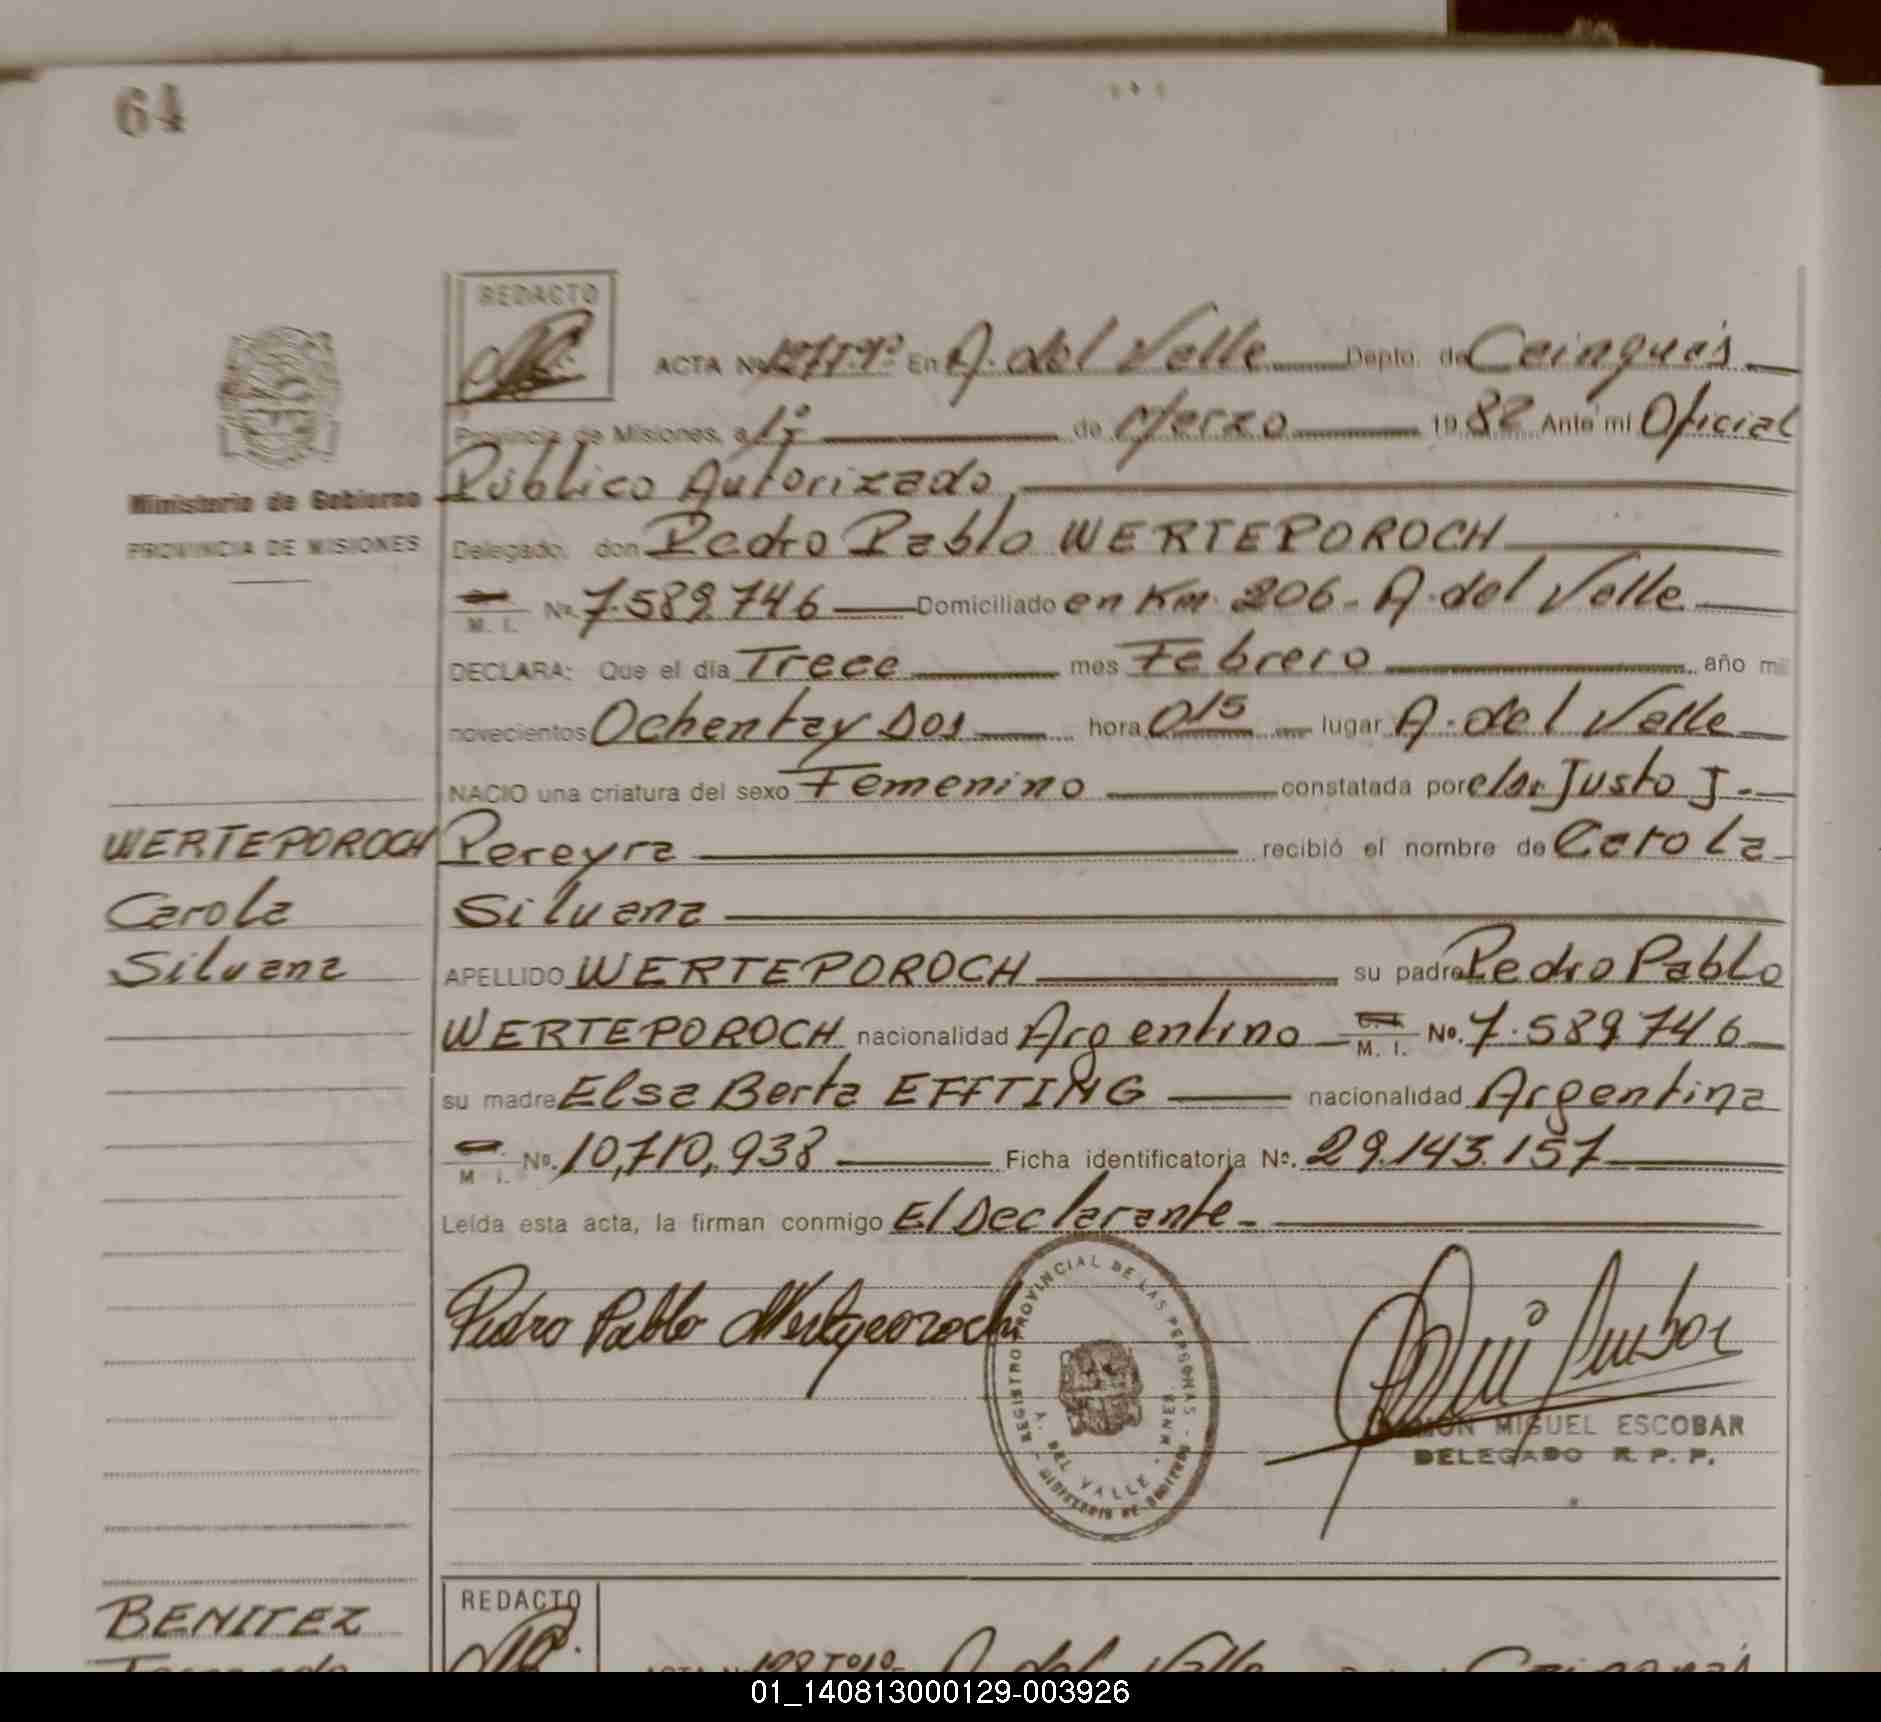 64
REDACTO
ACTA Nº 127Tº1º En A. del Valle Depto. de Cainguás
Provincia de Misiones, a 1º de Marzo 1982 Ante mi Oficial
Ministerio de Gobierno
Público Autorizado,
PROVINCIA DE MISIONES
Delegado, don Pedro Pablo WERTEPOROCH
M. I. Nº. 7.589.746 Domiciliado en Km. 206 - A. del Valle
DECLARA: Que el día Trece mes Febrero año mil
novecientos Ochentay Dos hora 015 lugar A. del Valle
NACIO una criatura del sexo Femenino constatada por el sr. Justo J.
WERTEPOROCH Pereyra recibió el nombre de Carola
Carola Silvana
Silvana APELLIDO WERTEPOROCH su padre Pedro Pablo
WERTEPOROCH nacionalidad Argentino M. I. Nº. 7.589.746
su madre Elsa Berta EFFTING nacionalidad Argentina
M. I. Nº. 10,710,938 Ficha identificatoria Nº. 29.143.157
Leída esta acta, la firman conmigo El Declarante -
Pedro Pablo Werteporoch
REGISTRO PROVINCIAL DE LAS PERSONAS - MINISTERIO DE GOBIERNO -
A. DEL VALLE - MNES.
MIGUEL ESCOBAR
DELEGADO R. P. P.
BENITEZ
REDACTO
128Tº1º A. del Valle Cainguás
01_140813000129-003926